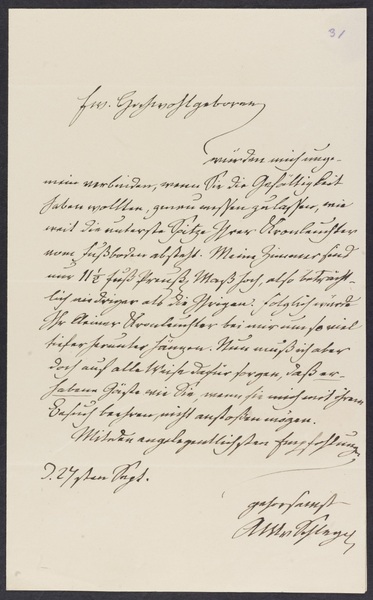 31
Ew. Hochwohlgeboren
würden mich unge-
mein verbinden, wenn Sie die Gefälligkeit
haben wollten, genau messen zu lassen, wie
weit die unterste Spitze Ihrer Kronleuchter
vom Fußboden absteht. Meine Zimmer sind
nur 11½ Fuß Preuß. Maß hoch, also beträcht-
lich niedriger als die Ihrigen: folglich würde
Ihr kleiner Kronleuchter bei mir um so viel
tiefer herunter hängen. Nun muß ich aber
doch auf alle Weise dafür sorgen, daß er-
habene Gäste wie Sie, wenn sie mich mit ihrem
Besuch beehren, nicht anstoßen mögen.
Mit den angelegentlichsten Empfehlungen
D. 27sten Sept.
gehorsamst
AWvSchlegel